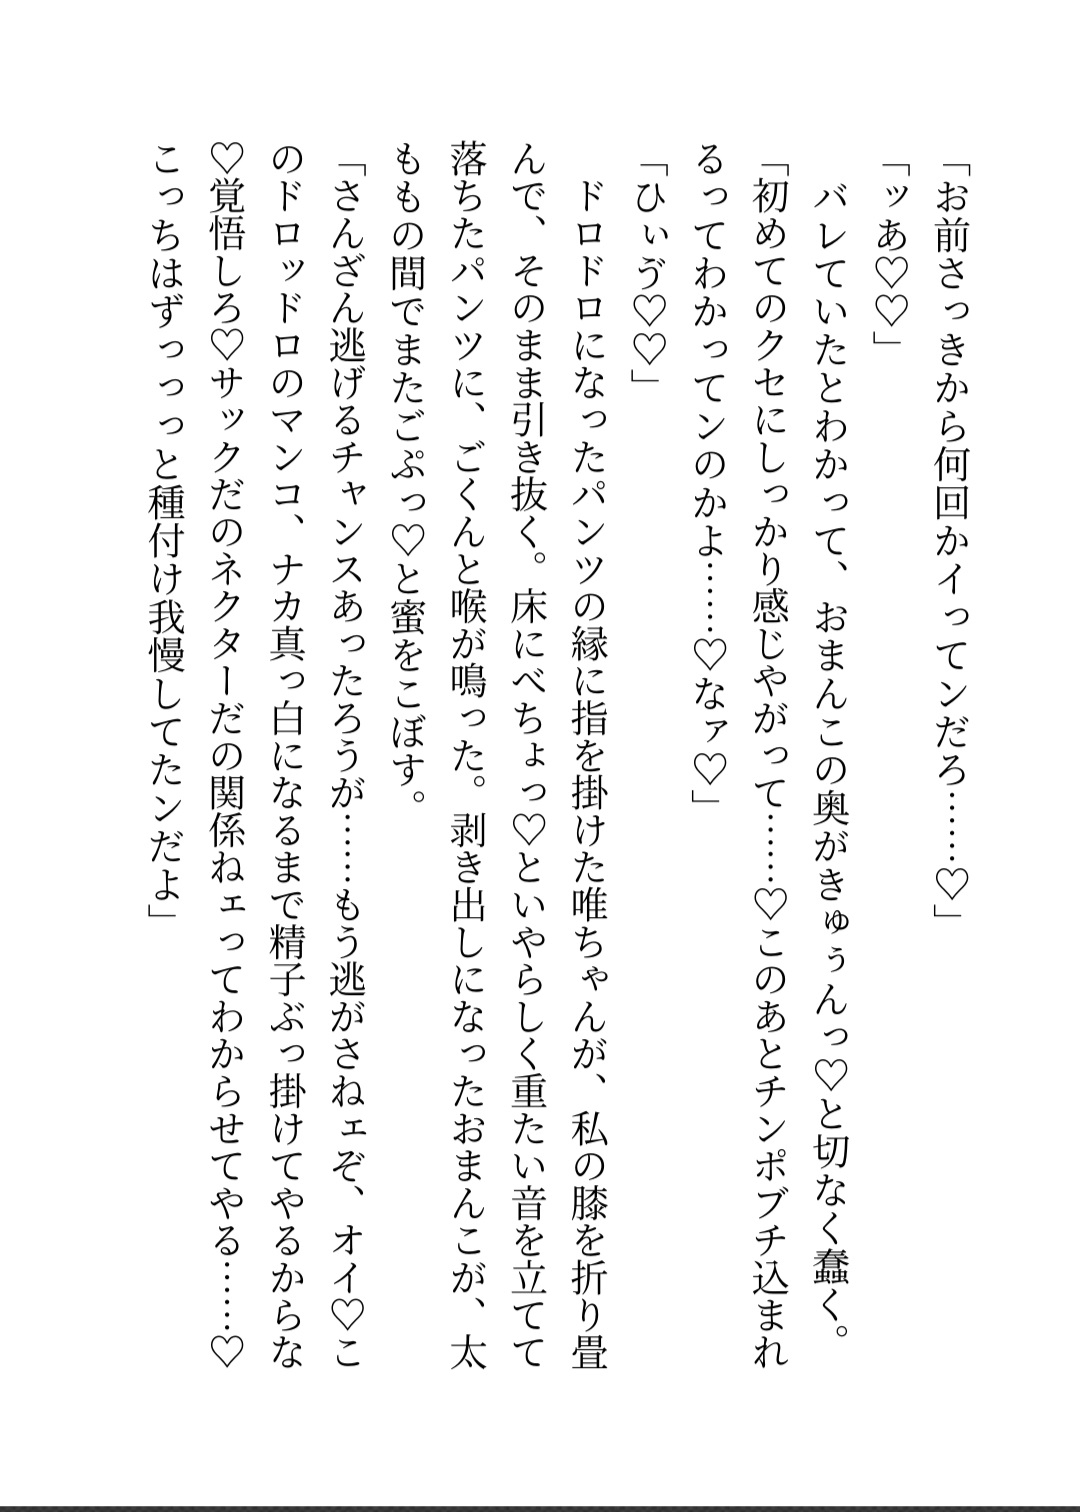 「お前さっきから何回かイってンだろ……♡」
「ッあ♡♡」
　バレていたとわかって、おまんこの奥がきゅぅんっ♡と切なく蠢く。
「初めてのクセにしっかり感じやがって……♡このあとチンポブチ込まれ
るってわかってンのかよ……♡なァ♡」
「ひぃゔ♡♡」
　ドロドロになったパンツの縁に指を掛けた唯ちゃんが、私の膝を折り畳
んで、そのまま引き抜く。床にべちょっ♡といやらしく重たい音を立てて
落ちたパンツに、ごくんと喉が鳴った。剥き出しになったおまんこが、太
ももの間でまたごぷっ♡と蜜をこぼす。
「さんざん逃げるチャンスあったろうが……もう逃がさねェぞ、オイ♡こ
のドロッドロのマンコ、ナカ真っ白になるまで精子ぶっ掛けてやるからな
♡覚悟しろ♡サックだのネクターだの関係ねェってわからせてやる……♡
こっちはずっっっと種付け我慢してたンだよ」